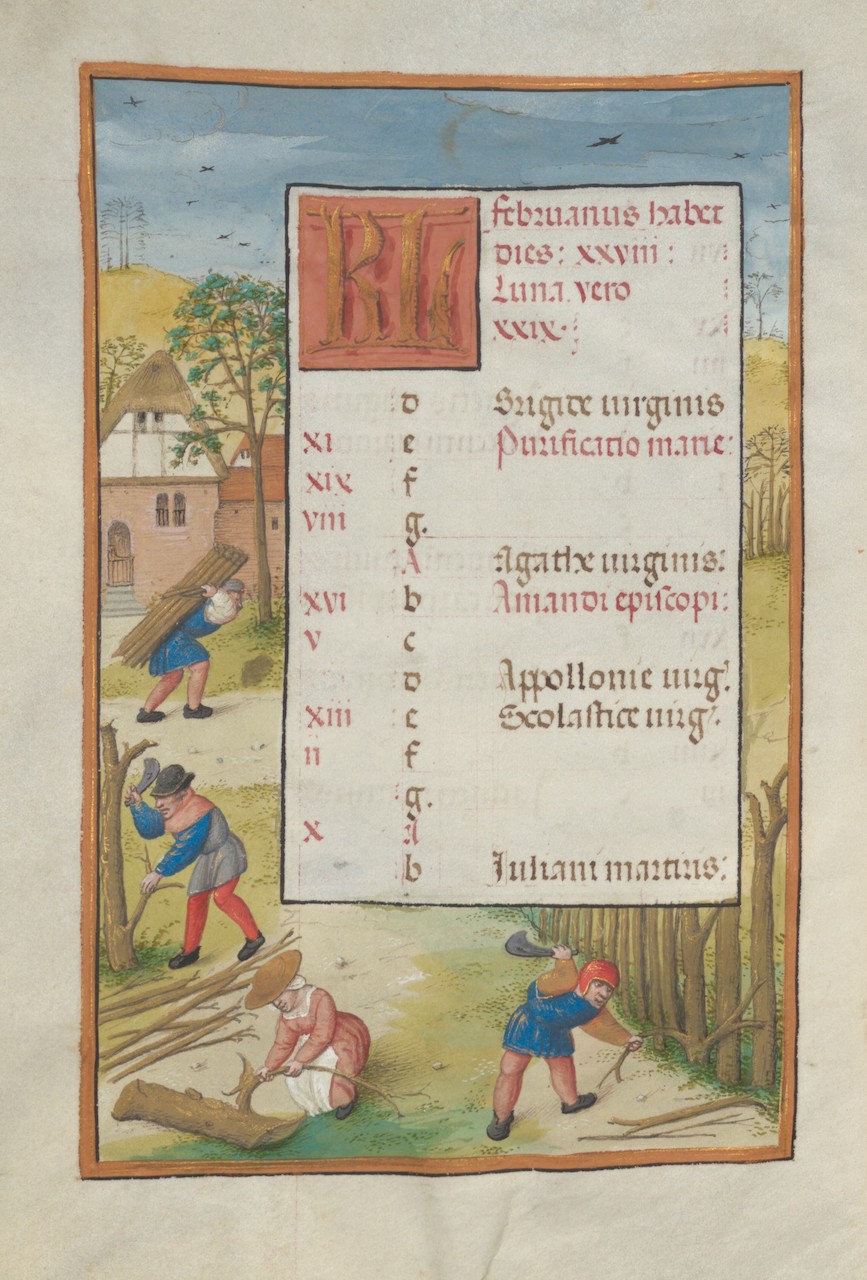 KL
februarius habet
dies: xxviii:
Luna vero
xxix:
d Brigide virginis
xi e Purificatio marie:
xix f
viii g.
A Agathe virginis:
xvi b Amandi episcopi:
v c
d Appollonie virg:
xiii e Scolastice virg:
ii f
g.
x A
b Iuliani martiris: